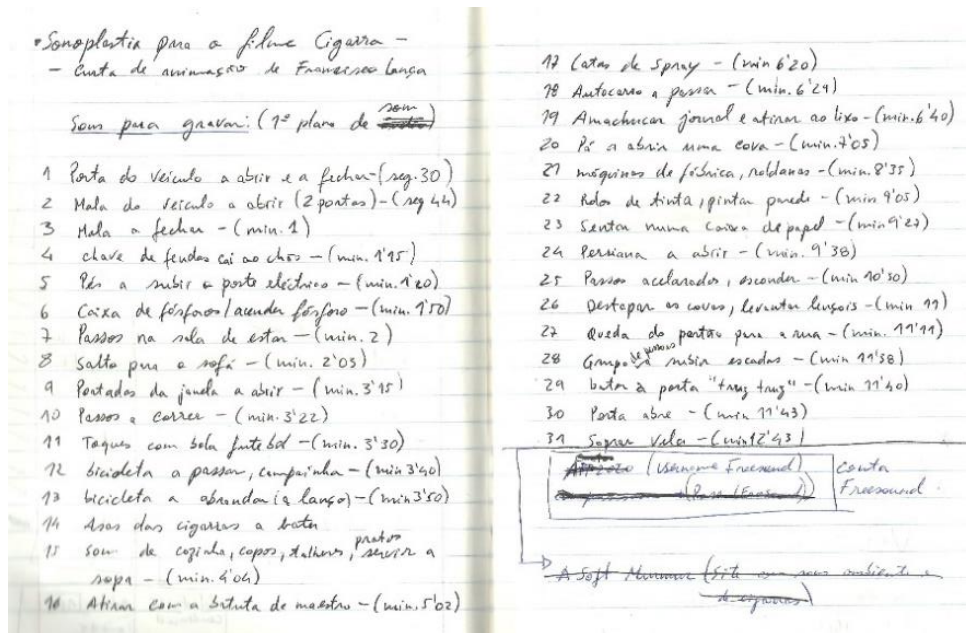 • Sonoplastia para o filme Cigarra –
– curta de animação de Francisco Lança
Sons para gravar: (1º plano de som)
1 Porta do veículo a abrir e a fechar – (seg. 30)
2 Mala do veículo a abrir (2 portas) – (seg 44)
3 Mala a fechar – (min. 1)
4 chave de fendas cai ao chão – (min. 1'15)
5 Pés a subir o poste eléctrico – (min. 1'20)
6 Caixa de fósforos / acender fósforo – (min. 1'50)
7 Passos na sala de estar – (min. 2)
8 Salto para o sofá – (min. 2'05)
9 Portadas da janela a abrir – (min. 3'15)
10 Passos a correr – (min. 3'22)
11 Toques com bola futebol – (min. 3'30)
12 bicicleta a passar, campainha – (min 3'40)
13 bicicleta a abrandar (a lanço) – (min 3'50)
14 Asas das cigarras a bater
15 Som de cozinha, copos, talheres, pratos, servir a
sopa – (min. 4'04)
16 Atirar com a batuta de maestro – (min. 5'02)
17 Latas de Spray – (min 6'20)
18 Autocarro a passar – (min. 6'29)
19 Amachucar jornal e atirar ao lixo – (min. 6'40)
20 Pá a abrir uma cova – (min. 7'05)
21 máquinas de fábrica, roldanas – (min. 8'35)
22 Rolos de tinta, pintar parede – (min 9'05)
23 Sentar numa caixa de papel – (min 9'27)
24 Persiana a abrir – (min. 9'38)
25 Passos acelarados, esconder – (min 10'50)
26 Destapar as covas, levantar lençois – (min 11)
27 Queda do portão para a rua – (min. 11'11)
28 Grupo de pessoas a subir escadas – (min 11'38)
29 bater à porta "truz truz" – (min 11'40)
30 Porta abre – (min 11'43)
31 Soprar Vela – (min 12'43)
(Username Freesound) conta
(Pass (Freesound)) Freesound.
A Soft Murmur (Site com sons ambiente e
de cigarras)